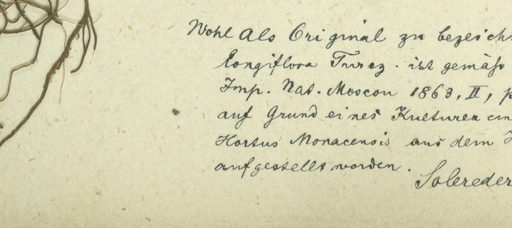 Wohl als Original zu bezeich
longiflora Turcz. ist gemäß
Imp. Nat. Moscou 1863, II, p
auf Grund eines Kulturex em
Hortus Monacensis aus dem H
aufgestellt worden.
Solereder